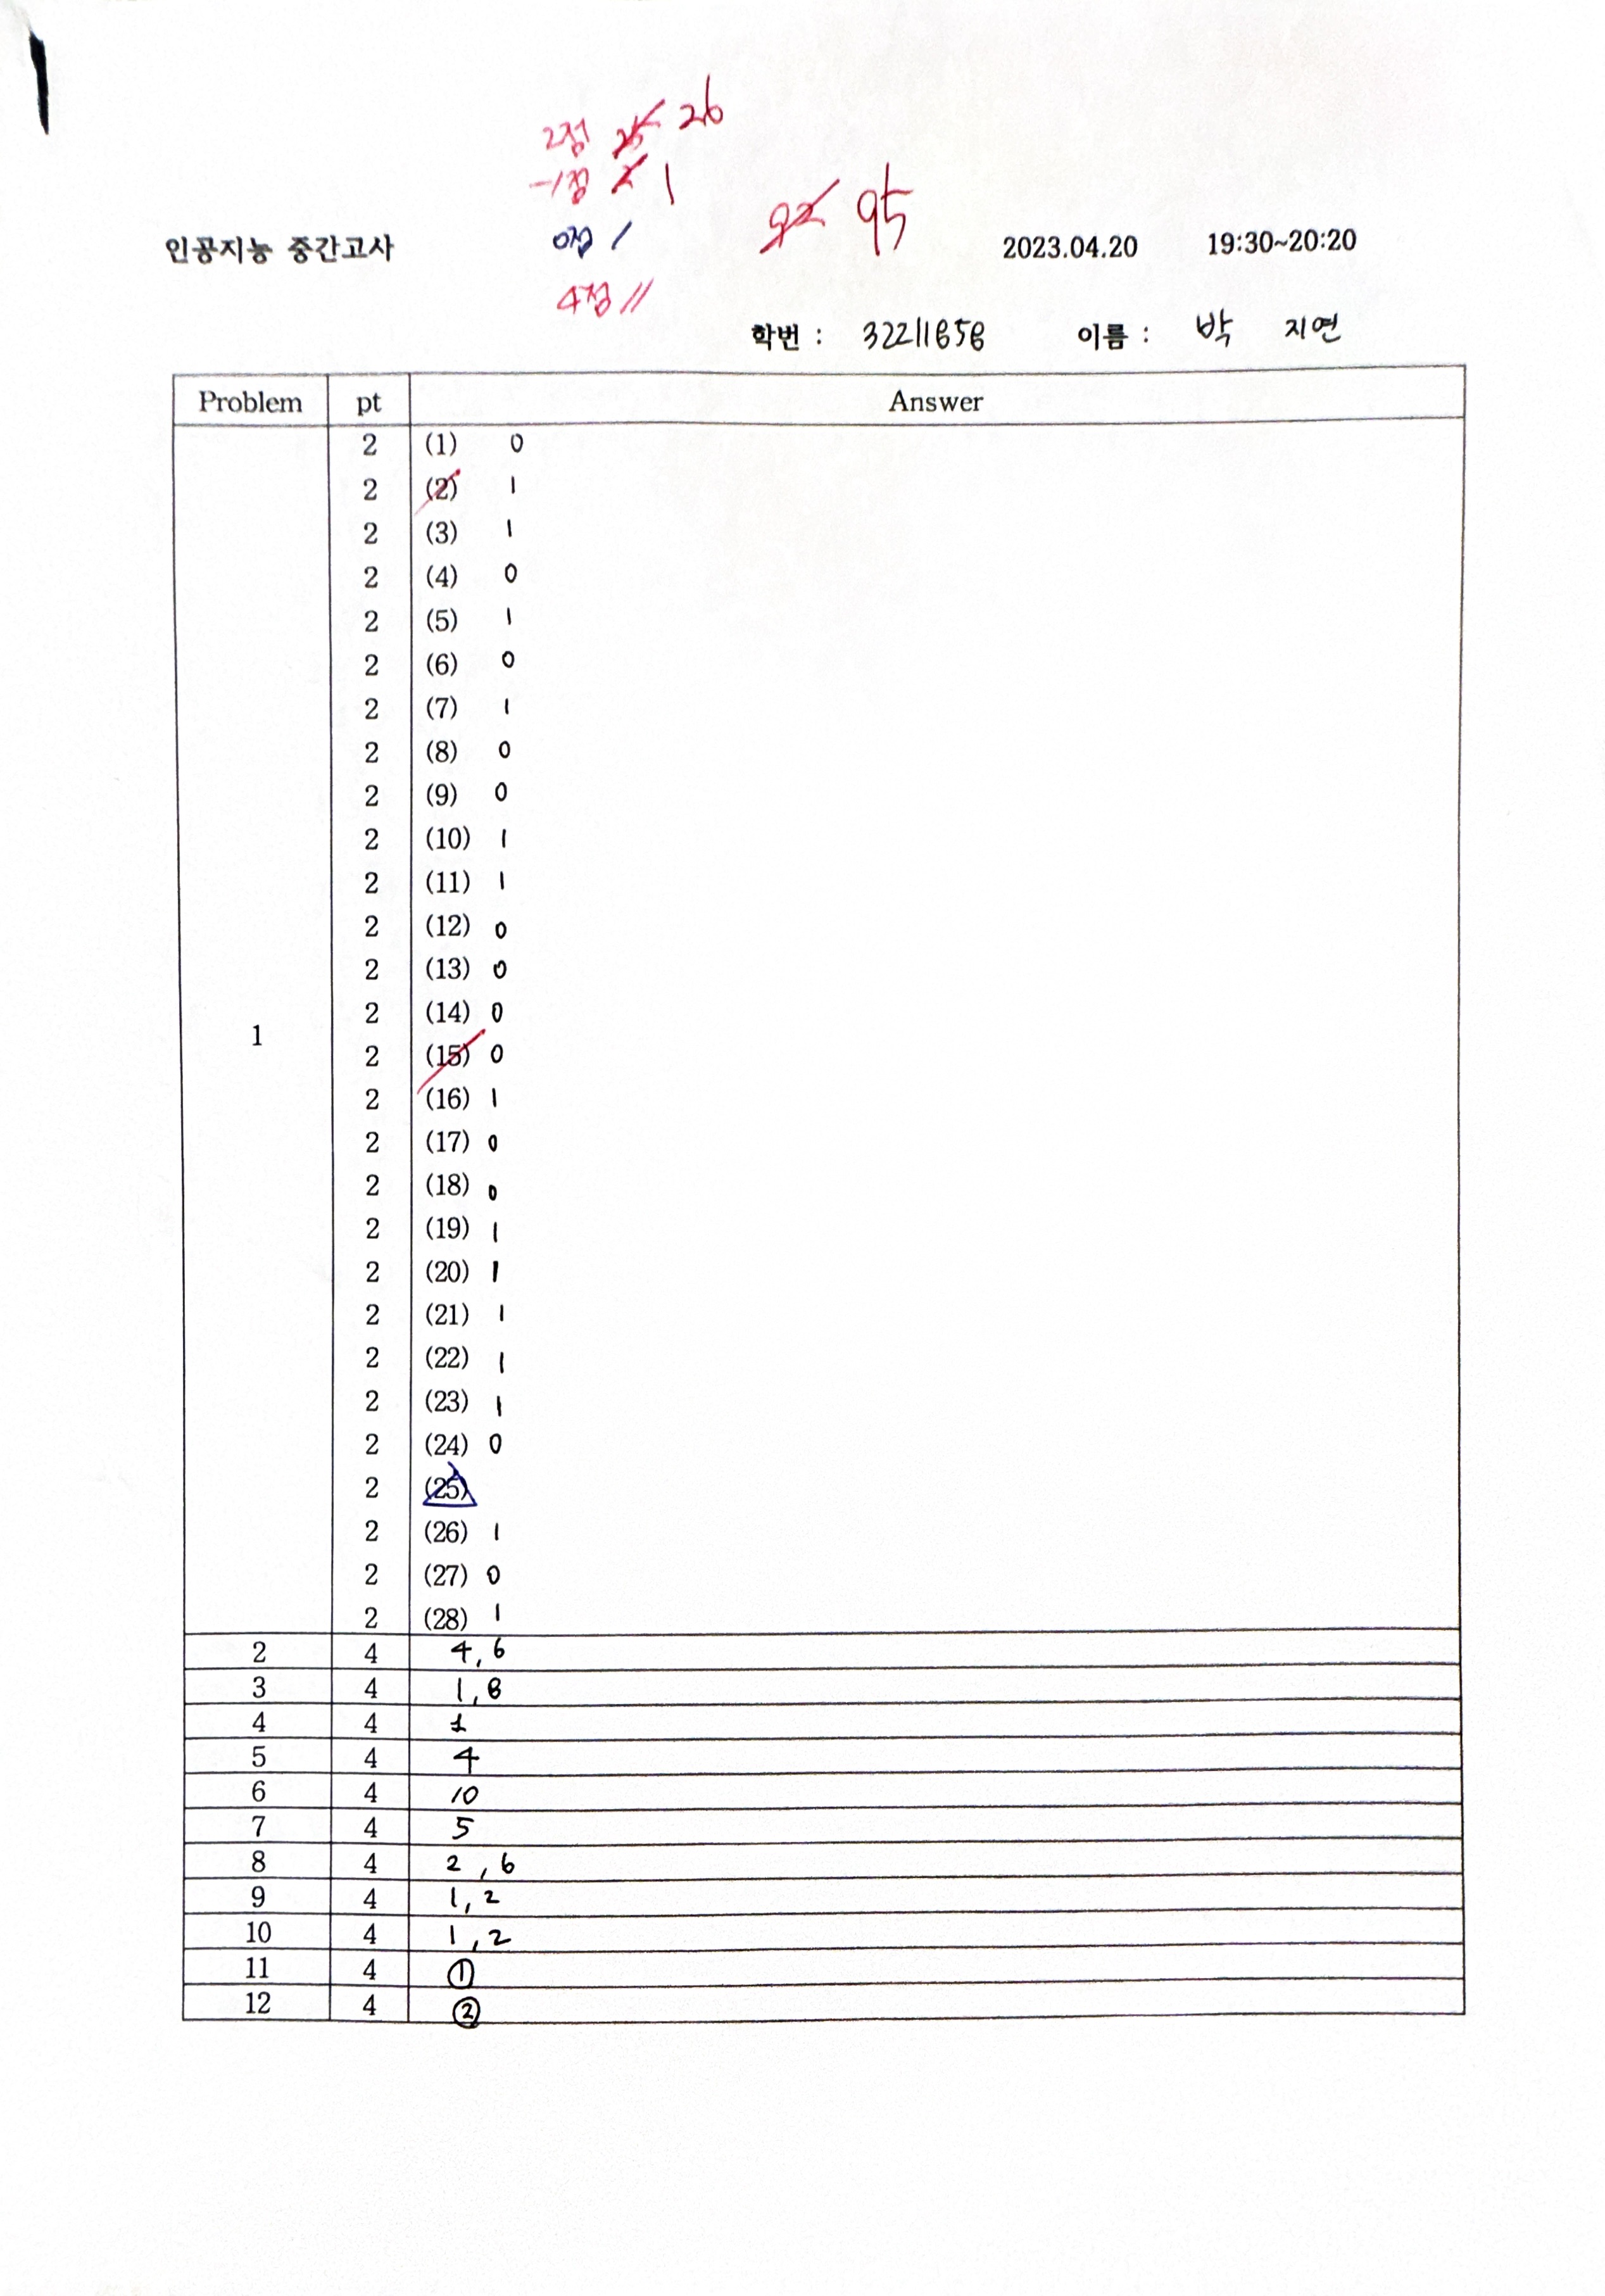 2점 25 26
-1점 2 1
0점 /
92 95
인공지능 중간고사 2023.04.20 19:30~20:20
4점 //
학번 : 32211658 이름 : 박 지연
Problem pt Answer
2 (1) 0
2 (2) 1
2 (3) 1
2 (4) 0
2 (5) 1
2 (6) 0
2 (7) 1
2 (8) 0
2 (9) 0
2 (10) 1
2 (11) 1
2 (12) 0
2 (13) 0
2 (14) 0
1
2 (15) 0
2 (16) 1
2 (17) 0
2 (18) 0
2 (19) 1
2 (20) 1
2 (21) 1
2 (22) 1
2 (23) 1
2 (24) 0
2 (25)
2 (26) 1
2 (27) 0
2 (28) 1
2 4 4, 6
3 4 1, 8
4 4 1
5 4 4
6 4 10
7 4 5
8 4 2, 6
9 4 1, 2
10 4 1, 2
11 4 ①
12 4 ②